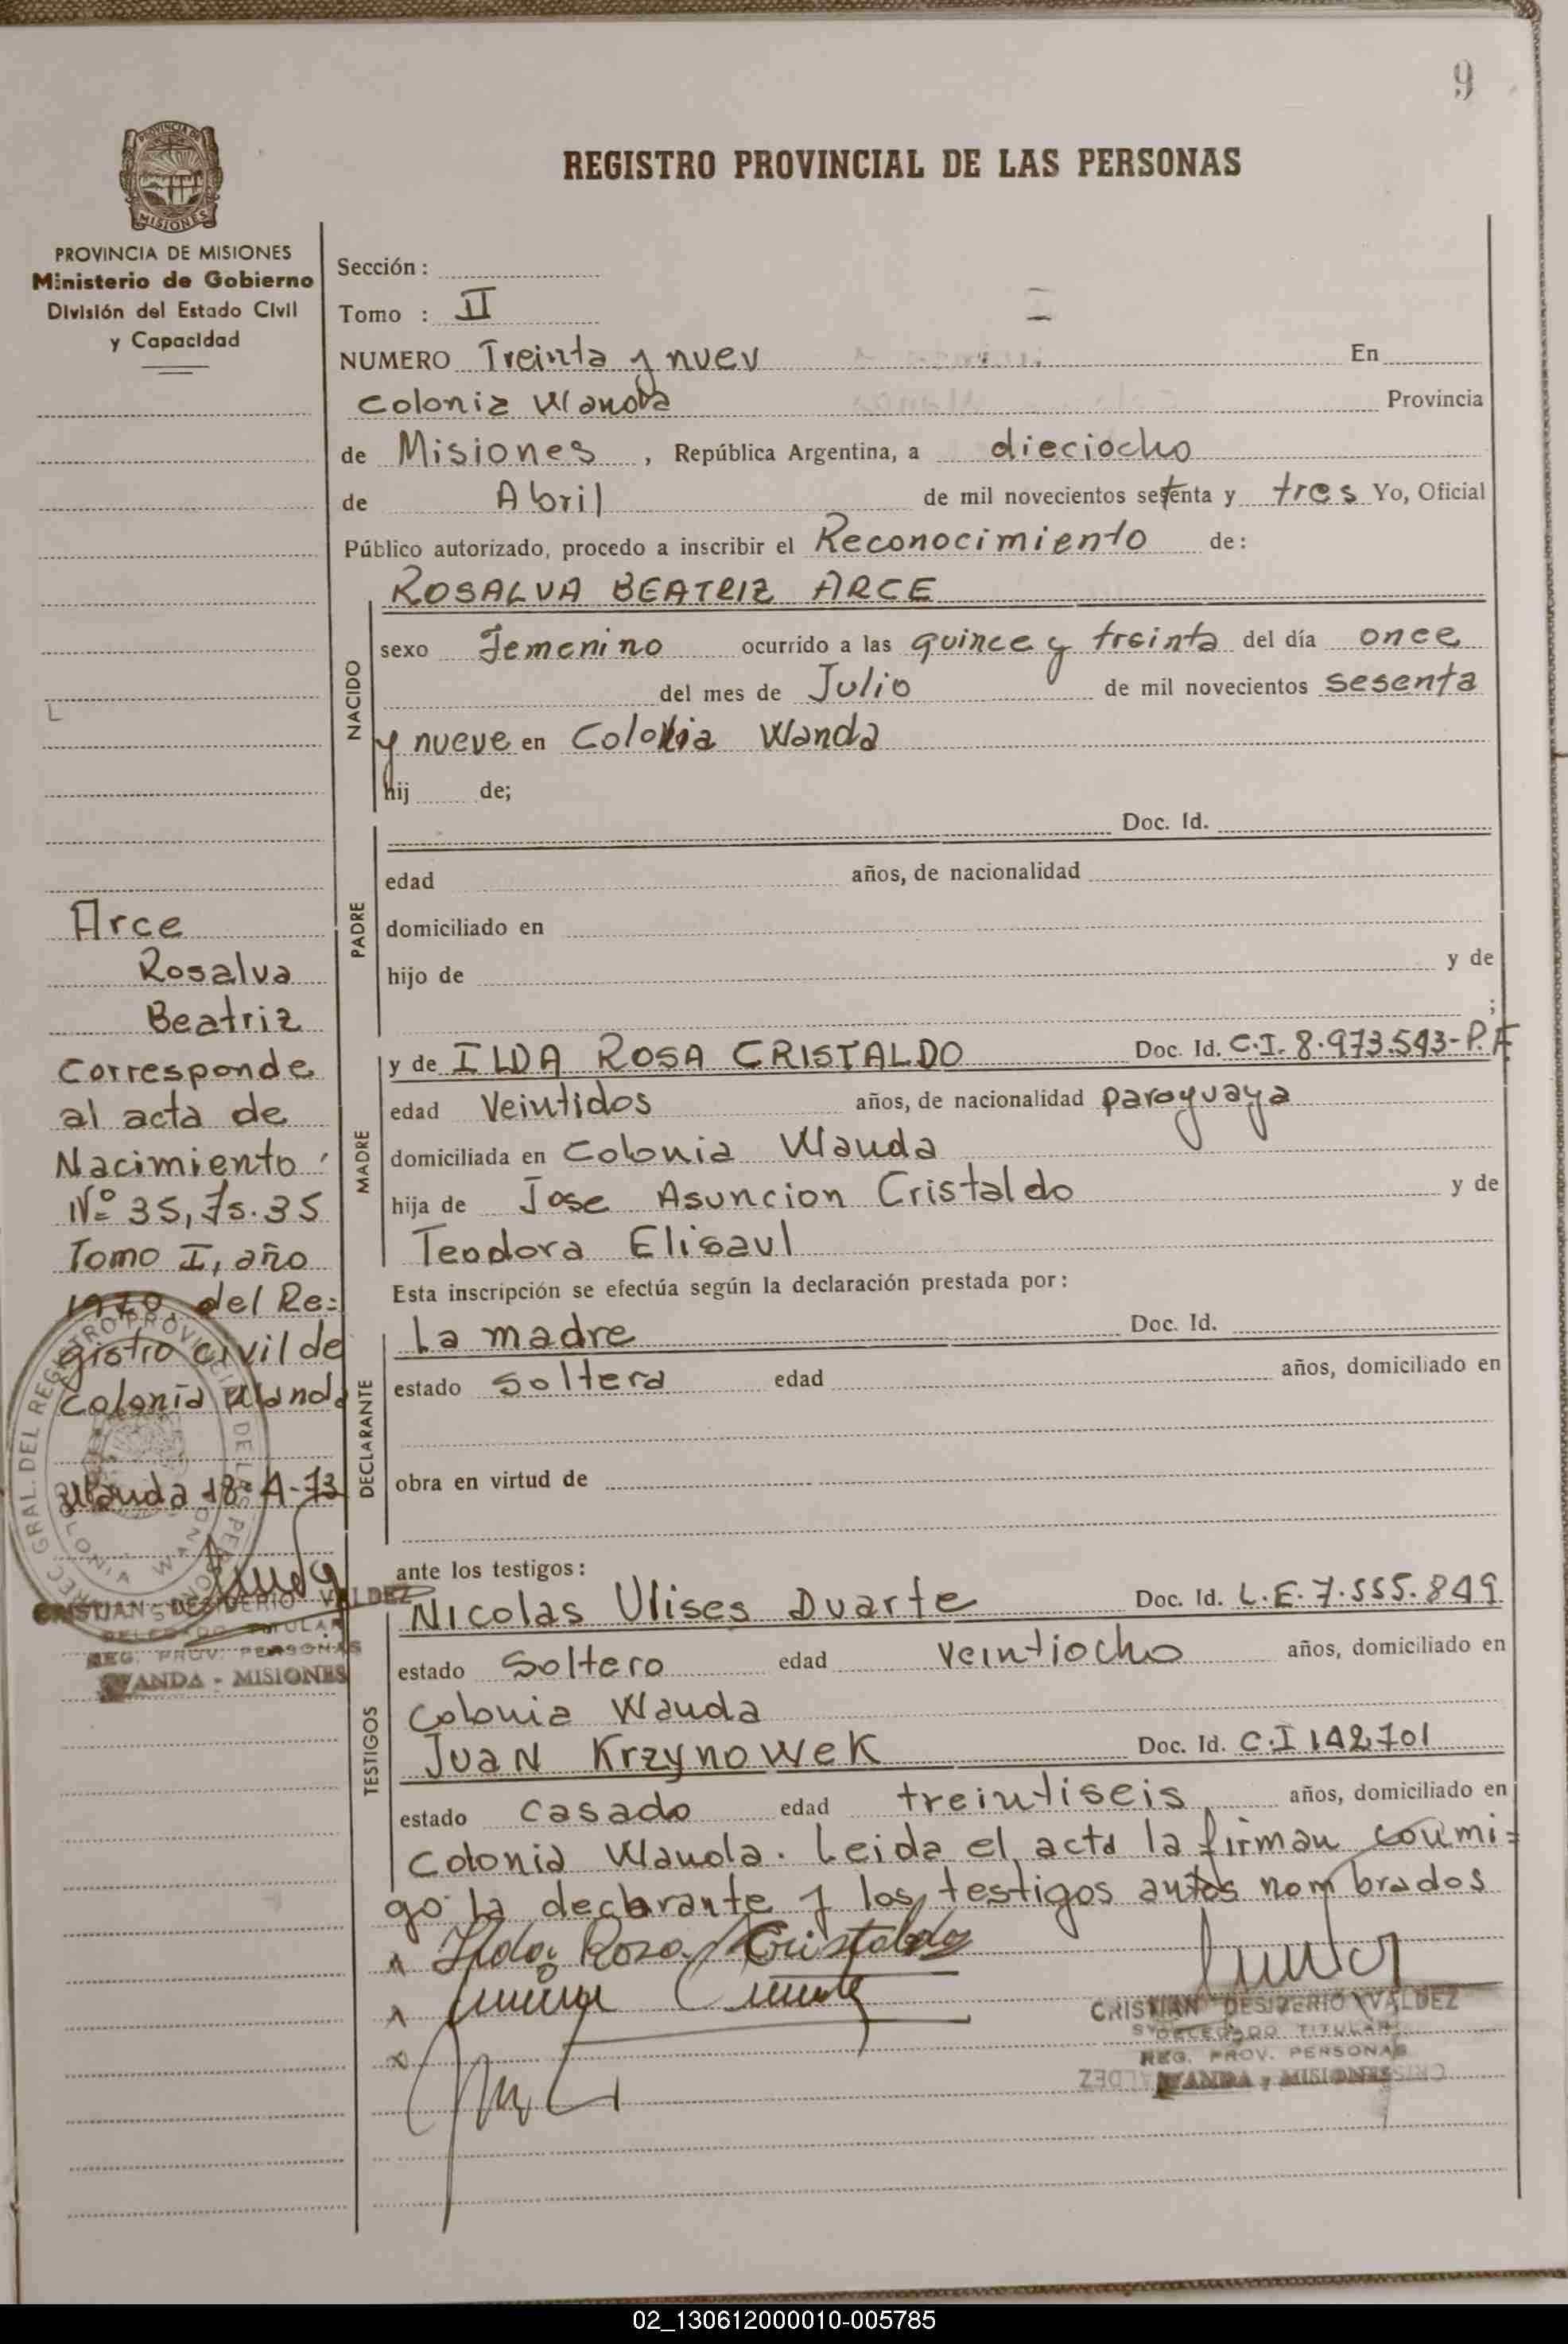 9
REGISTRO PROVINCIAL DE LAS PERSONAS
PROVINCIA DE
MISIONES
PROVINCIA DE MISIONES
Ministerio de Gobierno
División del Estado Civil
y Capacidad
Sección :
Tomo : II
NUMERO Treinta y nuev En
Colonia Wanda Provincia
de Misiones , República Argentina, a dieciocho
de Abril de mil novecientos setenta y tres Yo, Oficial
Público autorizado, procedo a inscribir el Reconocimiento de:
ROSALVA BEATRIZ ARCE
NACIDO
sexo Femenino ocurrido a las quince y treinta del día once
del mes de Julio de mil novecientos sesenta
y nueve en Colonia Wanda
hij de;
PADRE
Doc. Id.
edad años, de nacionalidad
domiciliado en
hijo de y de
;
MADRE
y de ILDA ROSA CRISTALDO Doc. Id. C.I. 8.973.543-P.F
edad Veintidos años, de nacionalidad paraguaya
domiciliada en Colonia Wanda
hija de Jose Asuncion Cristaldo y de
Teodora Elisaul
Esta inscripción se efectúa según la declaración prestada por:
DECLARANTE
La madre Doc. Id.
estado Soltera edad años, domiciliado en
obra en virtud de
ante los testigos:
TESTIGOS
Nicolas Ulises Duarte Doc. Id. L.E. 7.555.849
estado Soltero edad veintiocho años, domiciliado en
Colonia Wanda
Juan Krzynowek Doc. Id. C.I 142.701
estado Casado edad treintiseis años, domiciliado en
Colonia Wanda. Leida el acta la firman conmi=
go la declarante y los testigos antes nombrados
Ilda Rosa Cristaldo
CRISTIAN DESIDERIO VALDEZ
DELEGADO TITULAR
REG. PROV. PERSONAS
WANDA - MISIONES
Arce
Rosalva
Beatriz
Corresponde
al acta de
Nacimiento
Nº 35, Fs. 35
Tomo I, año
1970, del Re=
gistro civil de
Colonia Wanda
Wanda 18-4-73
CRISTIAN DESIDERIO VALDEZ
DELEGADO TITULAR
REG. PROV. PERSONAS
WANDA - MISIONES
02_130612000010-005785